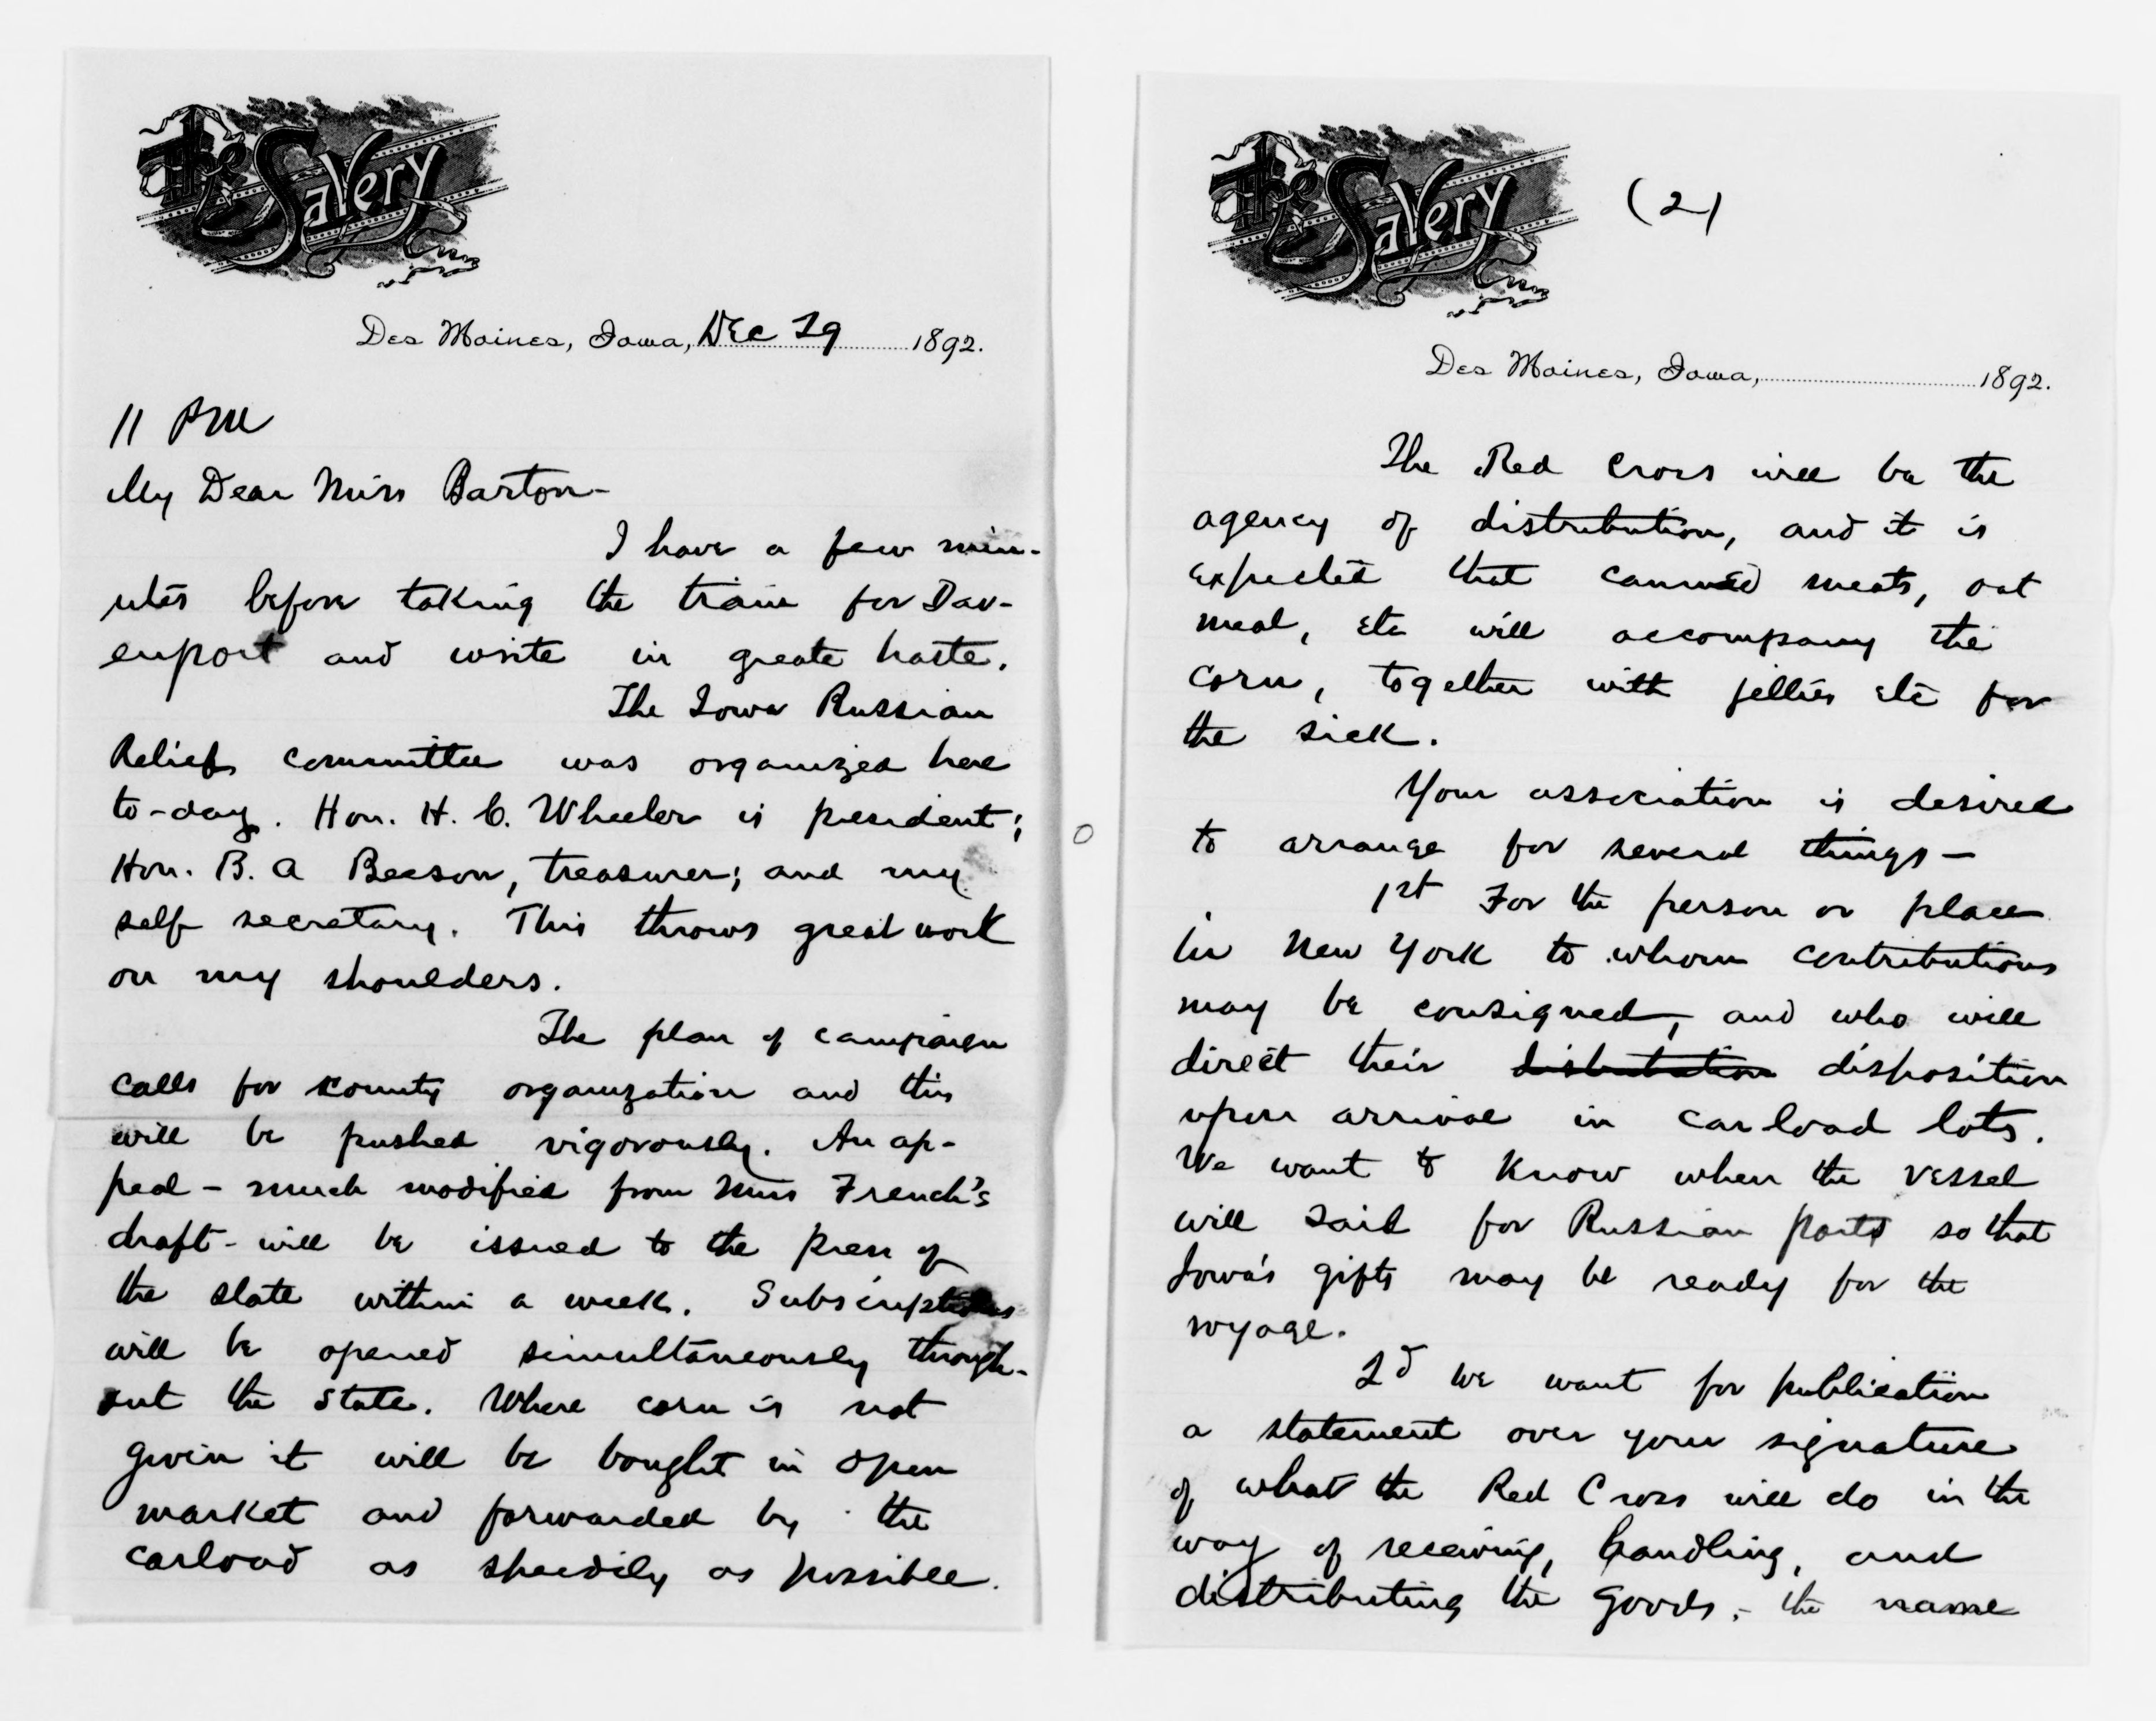 The Savery
Des Moines, Iowa, Dec 29 1892.
11 PM
My Dear Miss Barton-
I have a few min-
utes before taking the train for Dav-
enport and write in greate haste.
The Iowa Russian
Relief committee was organized here
to-day. Hon. H. C. Wheeler is president;
Hon. B. A Beeson, treasurer; and my
self secretary. This throws great work
on my shoulders.
The plan of campaign
calls for county organization and this
will be pushed vigorously. An ap-
peal - much modified from Miss French's
draft - will be issued to the press of
the state within a week. Subscriptions
will be opened simultaneously through-
out the state. Where corn is not
given it will be bought in open
market and forwarded by the
carload as speedily as possible.
The Savery
(2)
Des Moines, Iowa, 1892.
The Red Cross will be the
agency of distribution, and it is
expected that canned meats, oat
meal, etc will accompany the
corn, together with jellies etc for
the sick.
Your association is desired
to arrange for several things—
1st For the person or place
in New York to whom contributions
may be consigned, and who will
direct their distribution disposition
upon arrival in carload lots.
We want to know when the vessel
will sail for Russian ports so that
Iowa's gifts may be ready for the
voyage.
2d We want for publication
a statement over your signature
of what the Red Cross will do in the
way of receiving, handling, and
distributing the goods, - the name